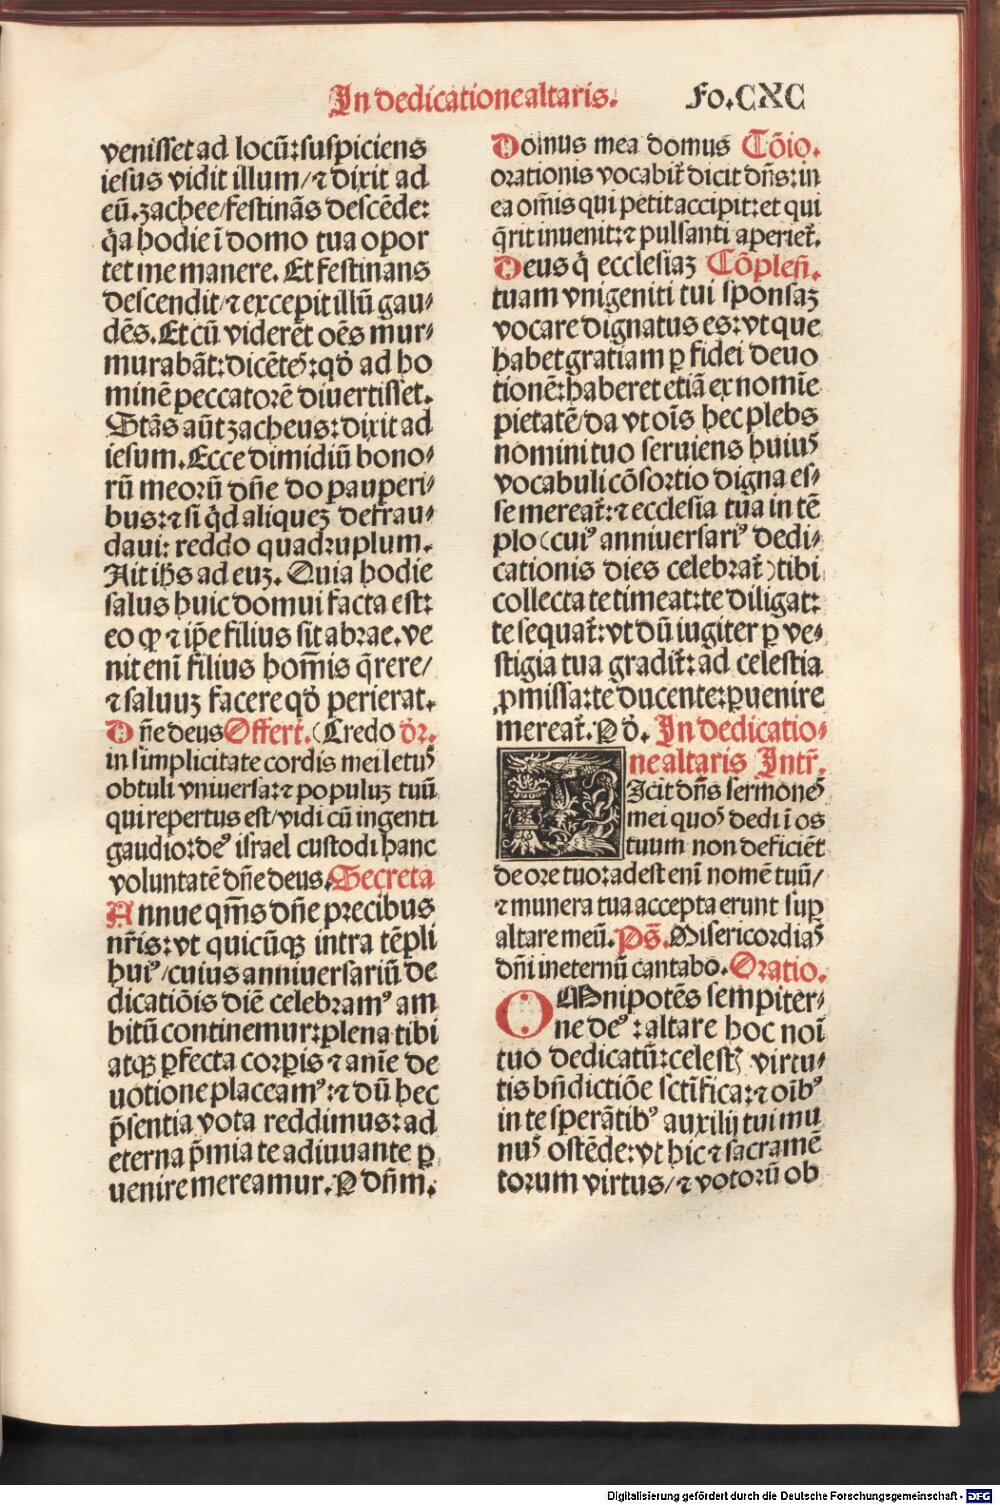 In dedicatione altaris.
Fo.CXC
venisset ad locũ: suspiciens
iesus vidit illum/ ⁊ dixit ad
eũ. zachee/ festinãs descẽde:
q̃a hodie ĩ domo tua opor
tet me manere. Et festinans
descendit/ ⁊ excepit illũ gau⸗
dẽs. Et cũ viderẽt oẽs mur⸗
murabãt: dicẽtes: qđ ad ho
minẽ peccatorẽ diuertisset.
Stãs aũt zacheus: dixit ad
iesum. Ecce dimidiũ bono⸗
rũ meorũ dñe do pauperi⸗
bus: ⁊ si q̃d aliquez defrau⸗
daui: reddo quadruplum.
Ait iħs ad euz. Quia hodie
salus huic domui facta est:
eo ꝙ ⁊ ip̃e filius sit abrae. ve
nit enĩ filius hom̃is q̃rere/
⁊ saluuz facere qđ perierat.
Dñe deus Offert̃. (Credo dr̃.
in simplicitate cordis mei letus
obtuli vniuersa: ⁊ populuz tuũ
qui repertus est/ vidi cũ ingenti
gaudio: deꝰ israel custodi hanc
voluntatẽ dñe deus. Secreta
Annue qm̃s dñe precibus
nr̃is: vt quicũqꝫ intra tẽpli
huiꝰ/ cuius anniuersariũ de
dicatiõis diẽ celebramꝰ am
bitũ continemur: plena tibi
atqꝫ ꝑfecta corꝑis ⁊ anĩe de
uotione placeamꝰ: ⁊ dũ hec
p̃sentia vota reddimus: ad
eterna p̃mia te adiuuante ꝑ
uenire mereamur. P dñm.
Domus mea domus Cõio.
orationis vocabit̃ dicit dñs: in
ea om̃is qui petit accipit: et qui
q̃rit inuenit: ⁊ pulsanti aperiet̃.
Deus q̃ ecclesiaz Cõpleñ.
tuam vnigeniti tui sponsaz
vocare dignatus es: vt que
habet gratiam ꝑ fidei deuo
tionẽ: haberet etiã ex nomĩe
pietatẽ/ da vt oĩs hec plebs
nomini tuo seruiens huiuꝰ
vocabuli cõsortio digna es⸗
se mereat̃: ⁊ ecclesia tua in tẽ
plo (cuiꝰ anniuersariꝰ dedi⸗
cationis dies celebrat̃) tibi
collecta te timeat: te diligat:
te sequat̃: vt dũ iugiter ꝑ ve⸗
stigia tua gradit̃: ad celestia
ꝓmissa: te ducente: ꝑuenire
mereat̃. P đ. In dedicatio⸗
ne altaris Intr̃.
DIcit dñs sermones
mei quos dedi ĩ os
tuum non deficiẽt
de ore tuo: adest enĩ nomẽ tuũ/
⁊ munera tua accepta erunt suꝑ
altare meũ. Ps̃. Misericordias
dñi in eternũ cantabo. Oratio.
OMnipotẽs sempiter⸗
ne deꝰ: altare hoc noĩ
tuo dedicatũ: celestꝭ virtu⸗
tis bñdictiõe sctĩfica: ⁊ oĩbꝰ
in te sperãtibꝰ auxilij tui mu
nus ostẽde: vt hic ⁊ sacramẽ
torum virtus/ ⁊ votorũ ob
Digitalisierung gefördert durch die Deutsche Forschungsgemeinschaft - DFG